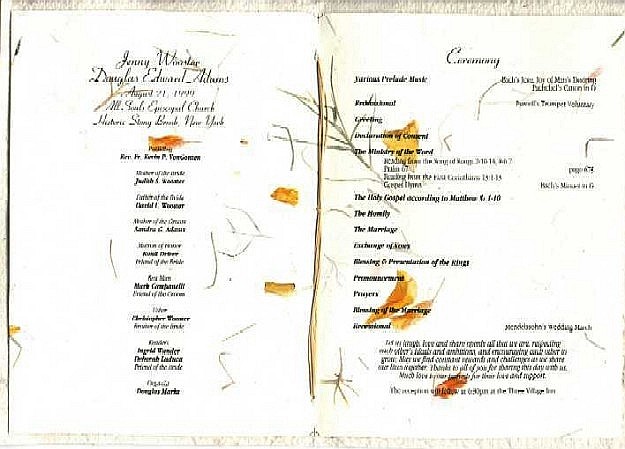 Jenny Woester
Douglas Edward Adams
August 21, 1999
All Souls Episcopal Church
Historic Stony Brook, New York
Rev. Fr. Kevin P. VonGonten
Mother of the Bride
Judith S. Woester
Father of the Bride
David I. Woester
Mother of the Groom
Sandra G. Adams
Matron of Honor
Friend of the Bride
Best Man
Mark Campanelli
Friend of the Groom
Usher
Christopher Woester
Brother of the Bride
Readers
Ingrid Wander
Deborah Laduca
Friend of the Bride
Organist
Douglas Marks
Ceremony
Various Prelude Music
Bach's Jesu, Joy of Man's Desiring
Pachelbel's Canon in G
Processional
Purcell's Trumpet Voluntary
Greeting
Declaration of Consent
The Ministry of the Word
Reading from the Song of Songs 2:10-14, 8:6-7
Psalm 67
page 675
Reading from the First Corinthians 13:1-13
Gospel Hymn
Bach's Minuet in G
The Holy Gospel according to Matthew 5: 1-10
The Homily
The Marriage
Exchange of Vows
Blessing & Presentation of the Rings
Pronouncement
Prayers
Blessing of the Marriage
Recessional
Mendelssohn's Wedding March
Let us laugh, love and share openly all that we are, respecting
each other's ideals and ambitions, and encouraging each other to
grow. May we find constant rewards and challenges as we share
our lives together. Thanks to all of you for sharing this day with us.
Much love to our parents for their love and support.
The reception will follow at 6:30pm at the Three Village Inn